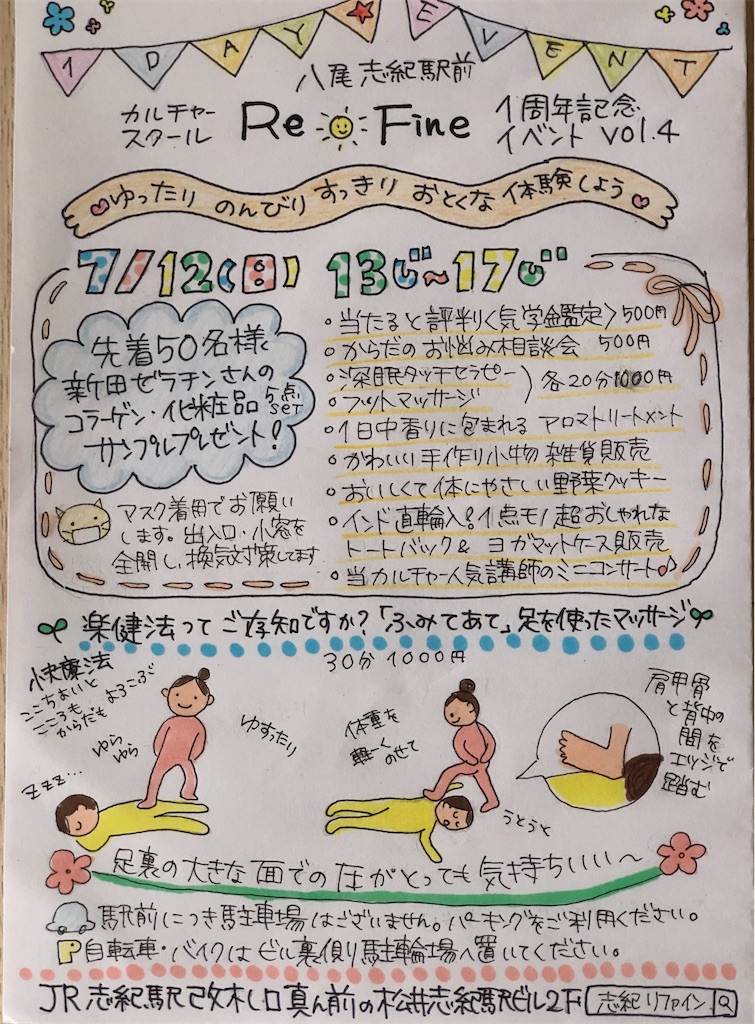 1 DAY EVENT
八尾志紀駅前
カルチャー
スクール
Re Fine
1周年記念
イベント vol.4
ゆったり のんびり すっきり おとくな 体験しよう
7/12(日) 13じ~17じ
先着50名様
新田ゼラチンさんの
コラーゲン・化粧品 5点set
サンプルプレゼント!
マスク着用でお願い
します。出入口・小窓を
全開し、換気対策してます
・当たると評判く気学鑑定〉500円
・からだのお悩み相談会 500円
・深眠タッチセラピー
・フットマッサージ
)各20分1000円
・1日中香りに包まれる アロマトリートメント
・かわいい手作り小物 雑貨販売
・おいしくて体にやさしい野菜クッキー
・インド直輸入!1点モノ超おしゃれな
トートバック& ヨガマットケース販売
・当カルチャー人気講師のミニコンサート♪
楽健法ってご存知ですか?「ふみてあて」足を使ったマッサージ
30分 1000円
快療法
ここちよいと
こころも よろこぶ
からだも
ゆら
ゆら
ゆったり
zzz...
体重を
軽ーく
のせて
うとうと
肩甲骨
と背中の
間を
エッジで
踏む
足裏の大きな面での圧がとっても気持ちいい〜
駅前につき駐車場はございません。パーキングをご利用ください。
P自転車・バイクはビル裏側り駐輪場へ置いてください。
JR志紀駅改札口真ん前の松井志紀駅ビル2F 志紀リファイン